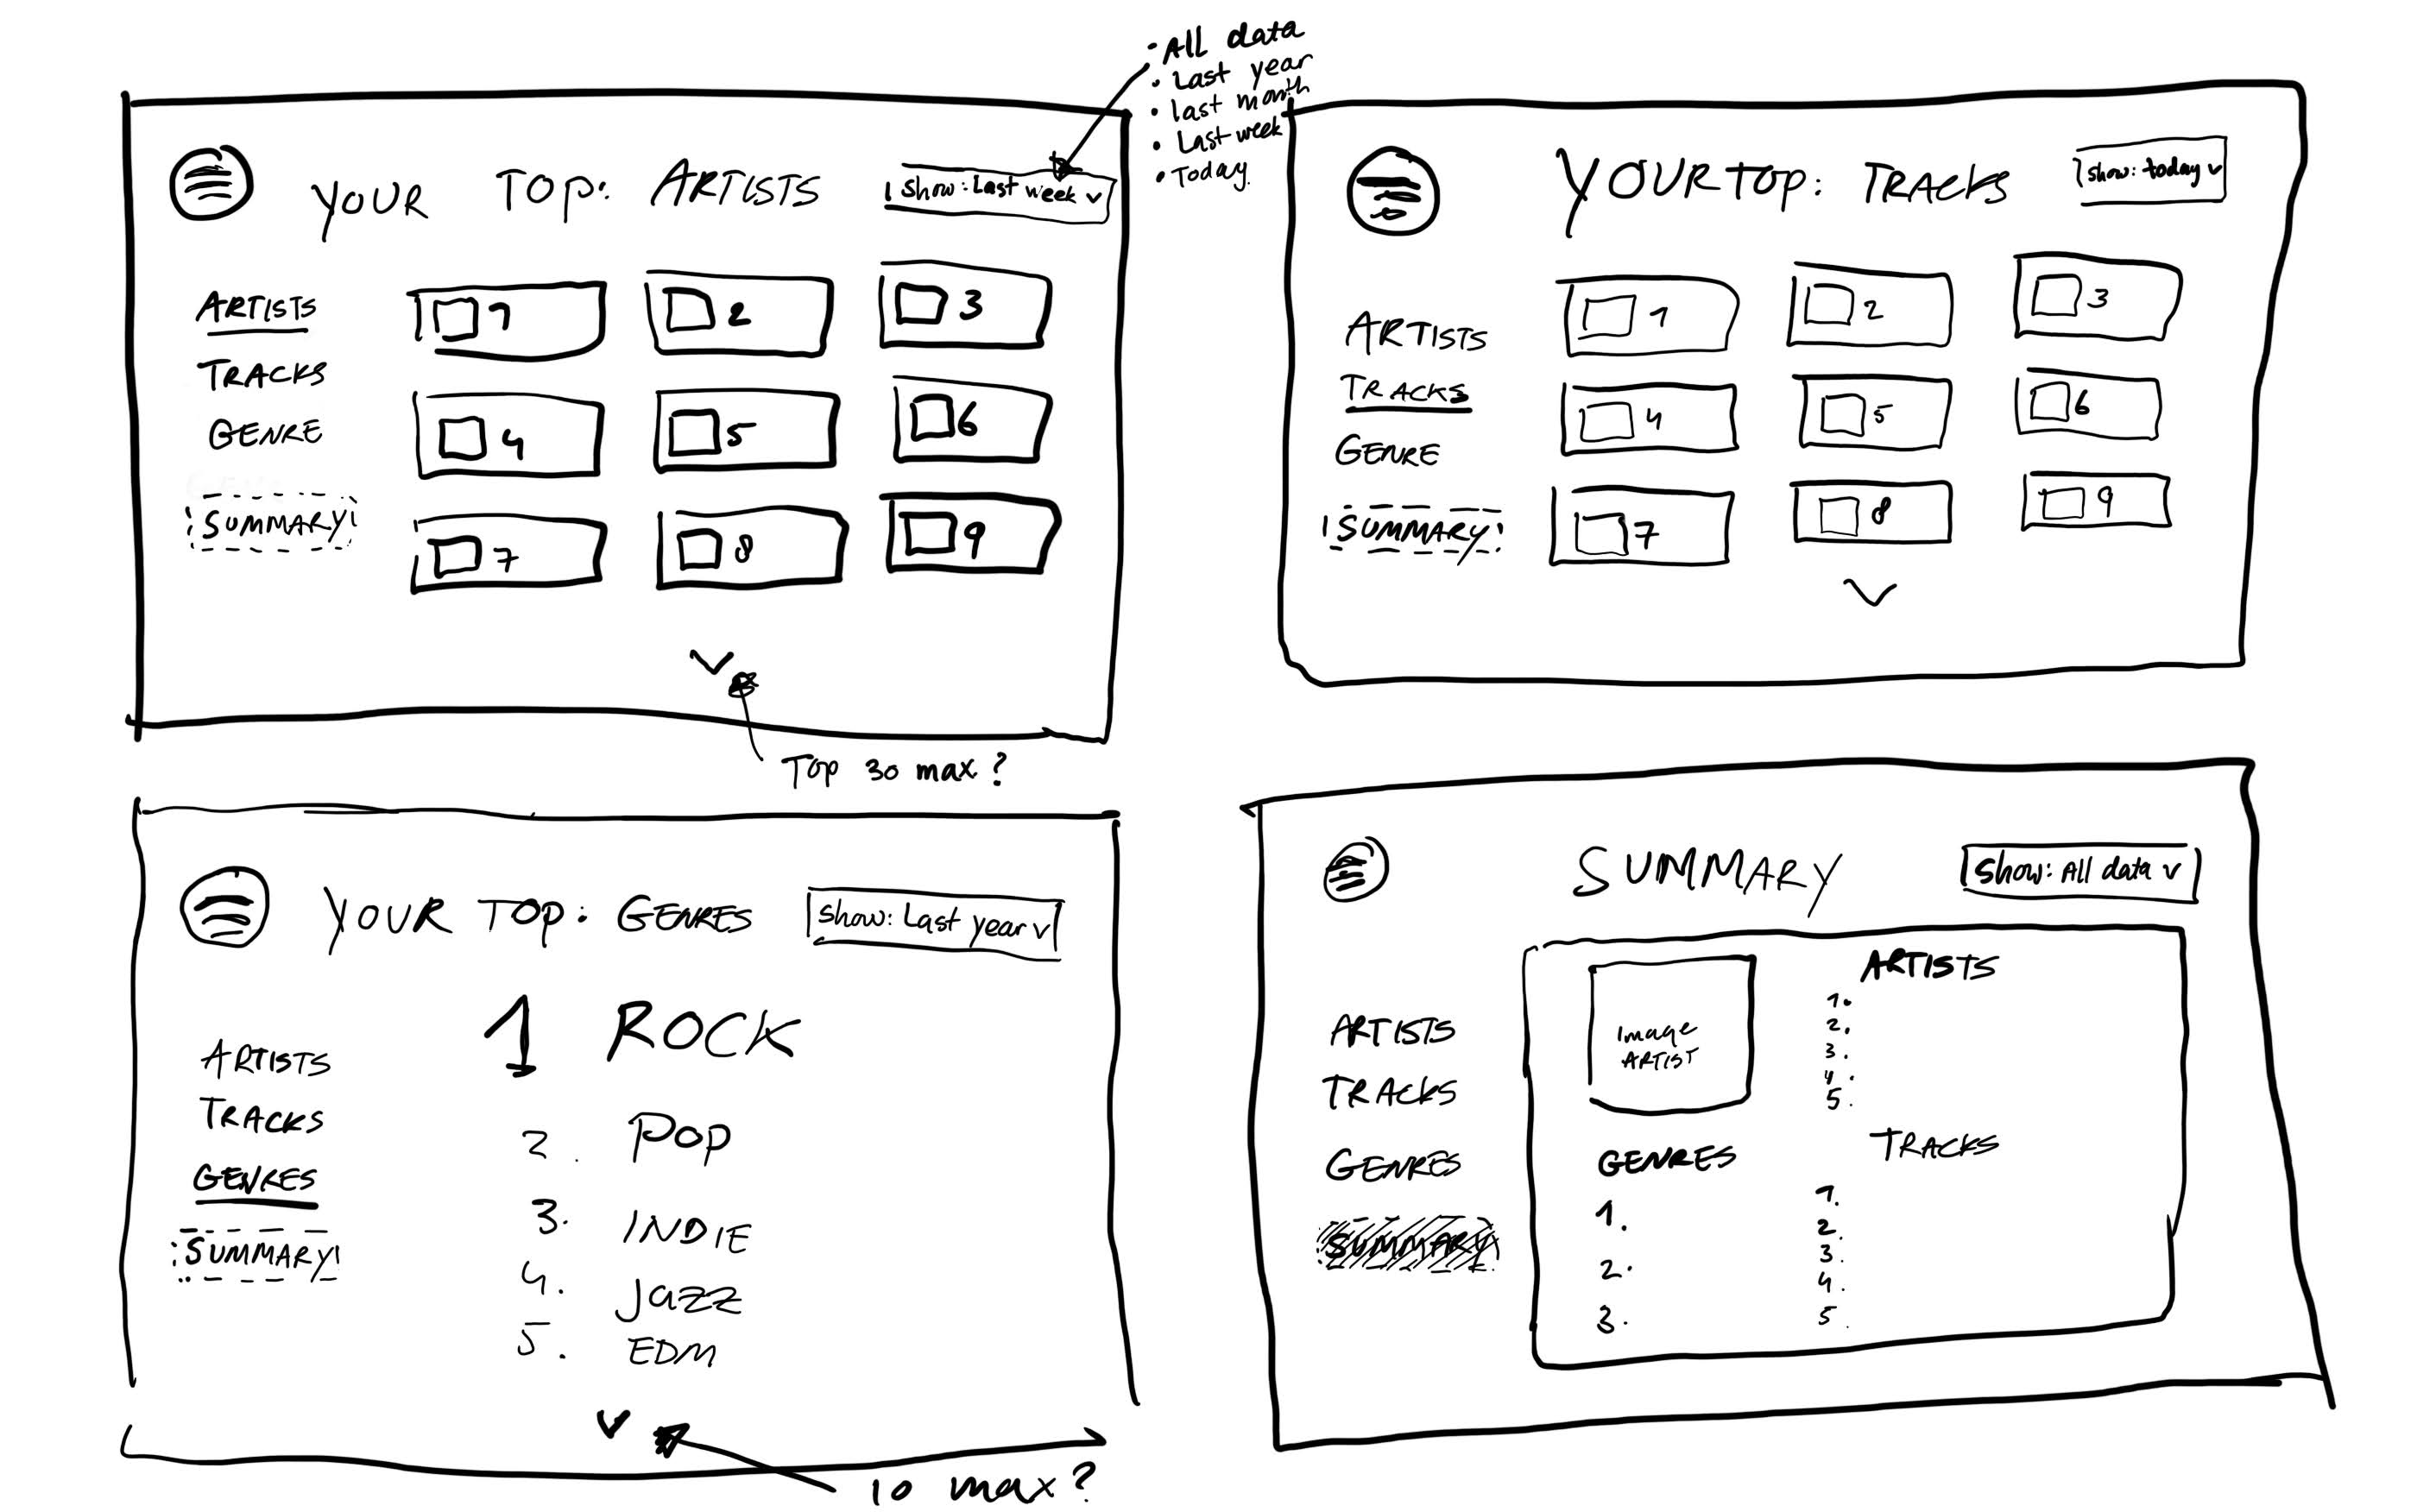 • All data
• Last year
• last month
• Last week
• Today.
YOUR TOP: ARTISTS
Show: Last week v
ARTISTS
TRACKS
GENRE
SUMMARY
1 2 3
4 5 6
7 8 9
Top 30 max?
YOUR TOP: TRACKS
show: today v
ARTISTS
TRACKS
GENRE
SUMMARY
1 2 3
4 5 6
7 8 9
YOUR TOP: GENRES
show: Last year v
ARTISTS
TRACKS
GENRES
SUMMARY
1 ROCK
2. POP
3. INDIE
4. Jazz
5. EDM
10 max?
SUMMARY
Show: All data v
ARTISTS
TRACKS
GENRES
SUMMARY
Image
ARTIST
GENRES
1.
2.
3.
ARTISTS
1.
2.
3.
4.
5.
TRACKS
1.
2.
3.
4.
5.